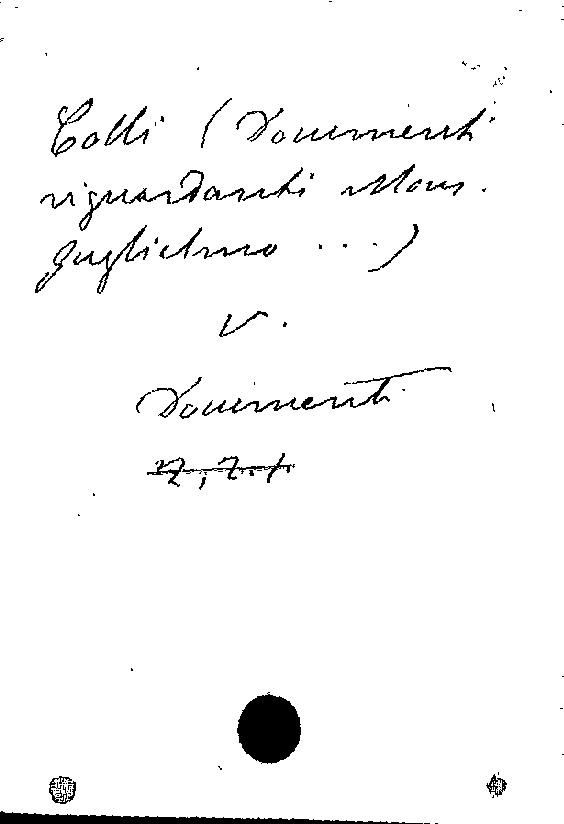 Colli (Documenti
riguardanti Mons.
Guglielmo ...)
V.
Documenti